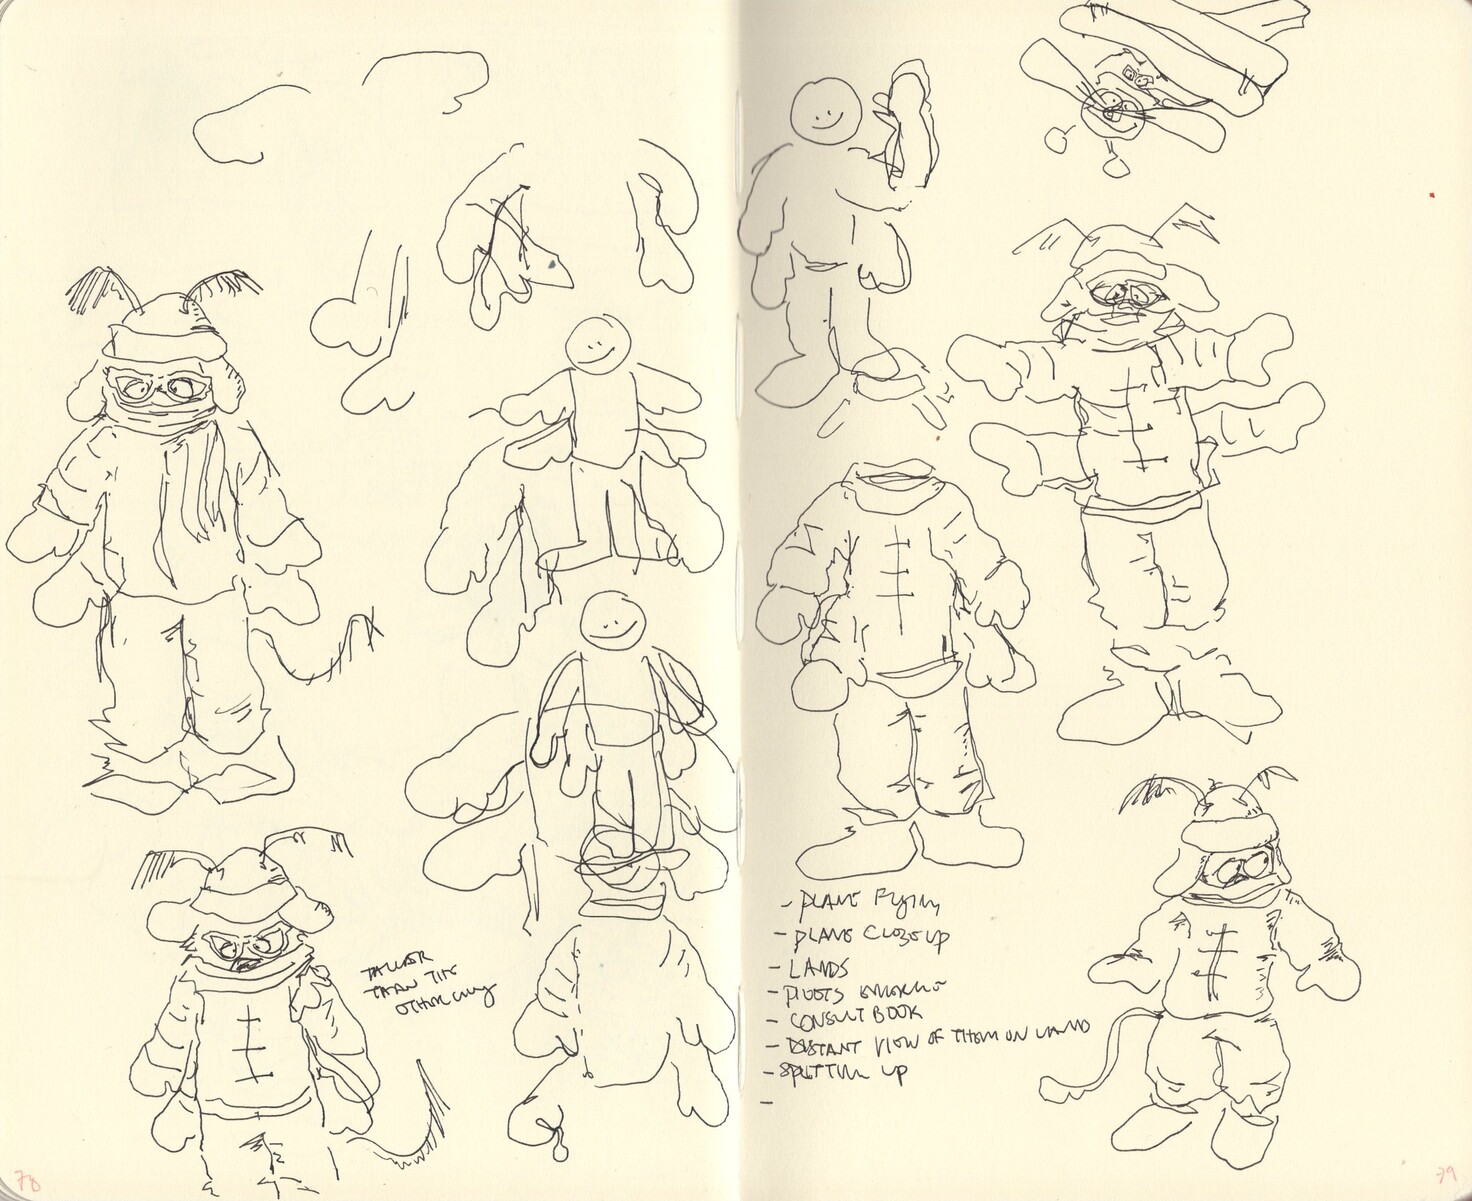 TALLER
THAN THE
OTHER GUY
- PLANE FLYING
- PLANE CLOSE UP
- LANDS
- PILOTS
- CONSULT BOOK
- DISTANT VIEW OF THEM ON LAND
- SPLITTING UP
-
78
79